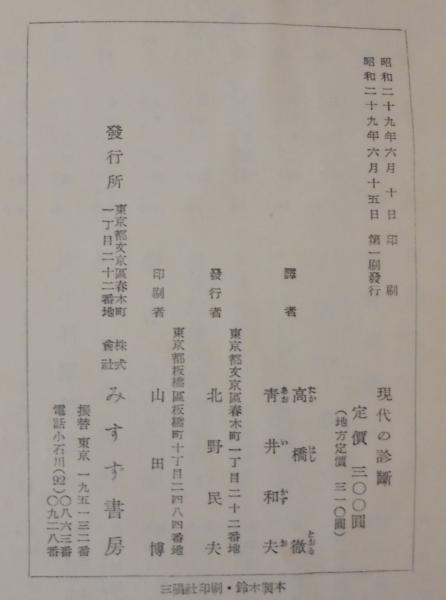 昭和二十九年六月十日 印刷
昭和二十九年六月十五日 第一刷發行
現代の診斷
定價 三〇〇圓
(地方定價 三一〇圓)
譯者
高橋徹
たかはしとおる
青井和夫
あおいかずお
東京都文京區春木町一丁目二十二番地
發行者 北野民夫
東京都板橋區板橋町十丁目二四八四番地
印刷者 山田博
發行所
東京都文京區春木町
一丁目二十二番地
株式會社 みすず書房
振替 東京 一九五一三二番
電話小石川(92) 〇八六三番
〇九二八番
三陽社印刷・鈴木製本